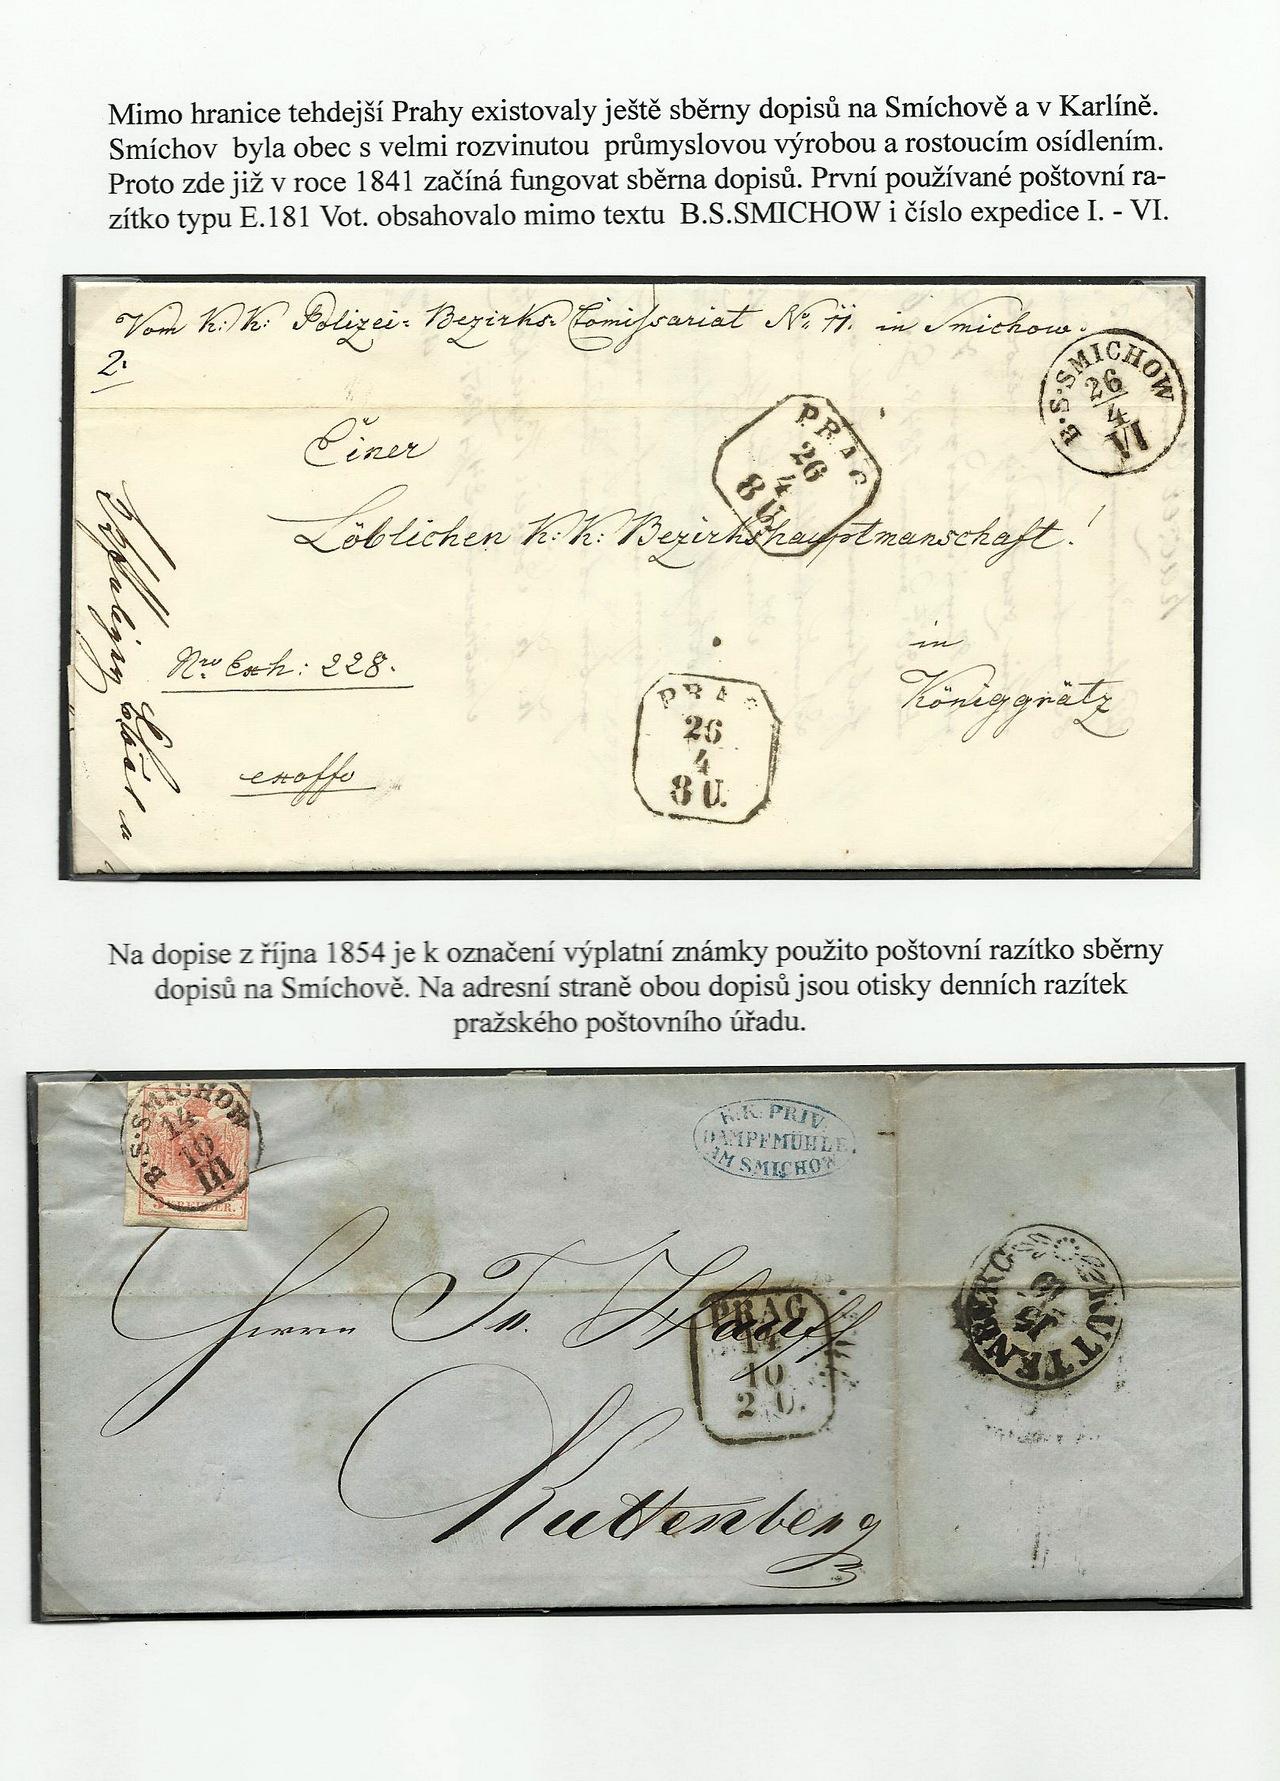 Mimo hranice tehdejší Prahy existovaly ještě sběrny dopisů na Smíchově a v Karlíně.
Smíchov byla obec s velmi rozvinutou průmyslovou výrobou a rostoucím osídlením.
Proto zde již v roce 1841 začíná fungovat sběrna dopisů. První používané poštovní ra-
zítko typu E.181 Vot. obsahovalo mimo textu B.S.SMICHOW i číslo expedice I. - VI.
Vom K: K: Polizei= Bezirks= Comissariat No. 11. in Smichow.
2.
B.S.SMICHOW
26
4
VI
PRAG
26
4
8 U.
Einer
Löblichen K: K: Bezirkshauptmanschaft!
in
Königgrätz
Nro Exh: 228.
exoffo
PRAG
26
4
8 U.
Na dopise z října 1854 je k označení výplatní známky použito poštovní razítko sběrny
dopisů na Smíchově. Na adresní straně obou dopisů jsou otisky denních razítek
pražského poštovního úřadu.
B.S.SMICHOW
14
10
III
KREUZER.
K.K. PRIV.
DAMPFMÜHLE.
IM SMICHOW
Herrn Hauff
PRAG
14
10
2 U.
KUTTENBERG
Kuttenberg